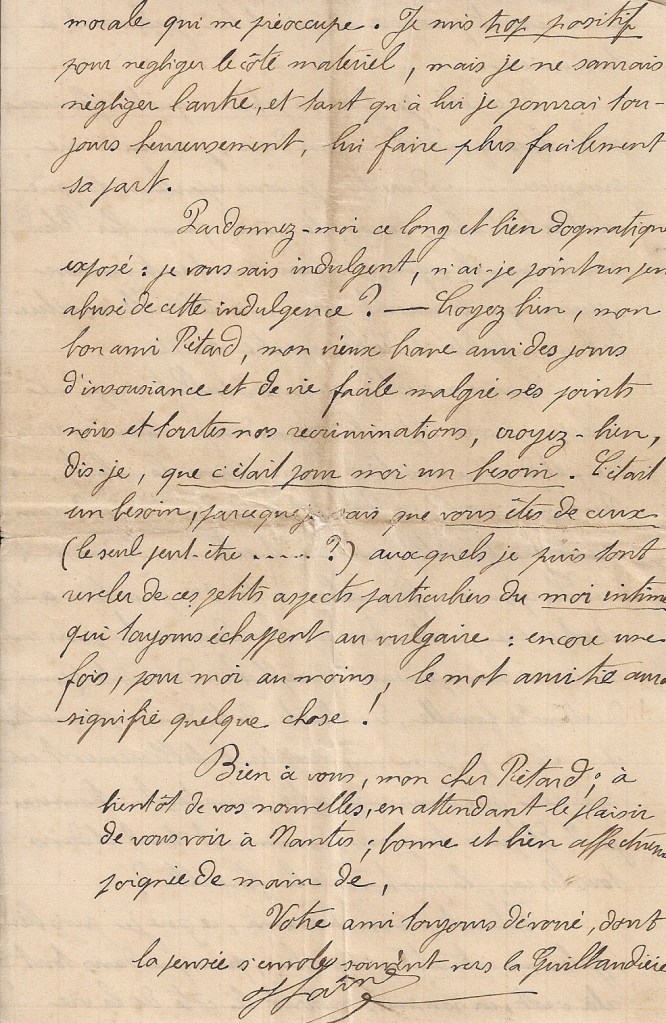 morale qui me préoccupe. Je suis trop positif
pour négliger le côté matériel, mais je ne saurais
négliger l'autre, et tant qu'à lui je pourrai tou-
jours heureusement, lui faire plus facilement
sa part.
Pardonnez-moi ce long et bien dogmatique
exposé : je vous sais indulgent, n'ai-je point un peu
abusé de cette indulgence ? — Croyez bien, mon
bon ami Piétard, mon vieux brave ami des jours
d'insousiance et de vie facile malgré ses points
noirs et toutes nos récriminations, croyez-bien,
dis-je, que c'était pour moi un besoin. C'était
un besoin, parceque je sais que vous êtes de ceux
(le seul peut-être ..... ?) auxquels je puis tout
révéler de ces petits aspects particuliers du moi intime
qui toujours échappent au vulgaire : encore une
fois, pour moi au moins, le mot amitié aura
signifié quelque chose !
Bien à vous, mon cher Piétard ; à
bientôt de vos nouvelles, en attendant le plaisir
de vous voir à Nantes ; bonne et bien affectueuse
poignée de main de,
Votre ami toujours dévoué, dont
la pensée s'envole souvent vers la Guillaudière